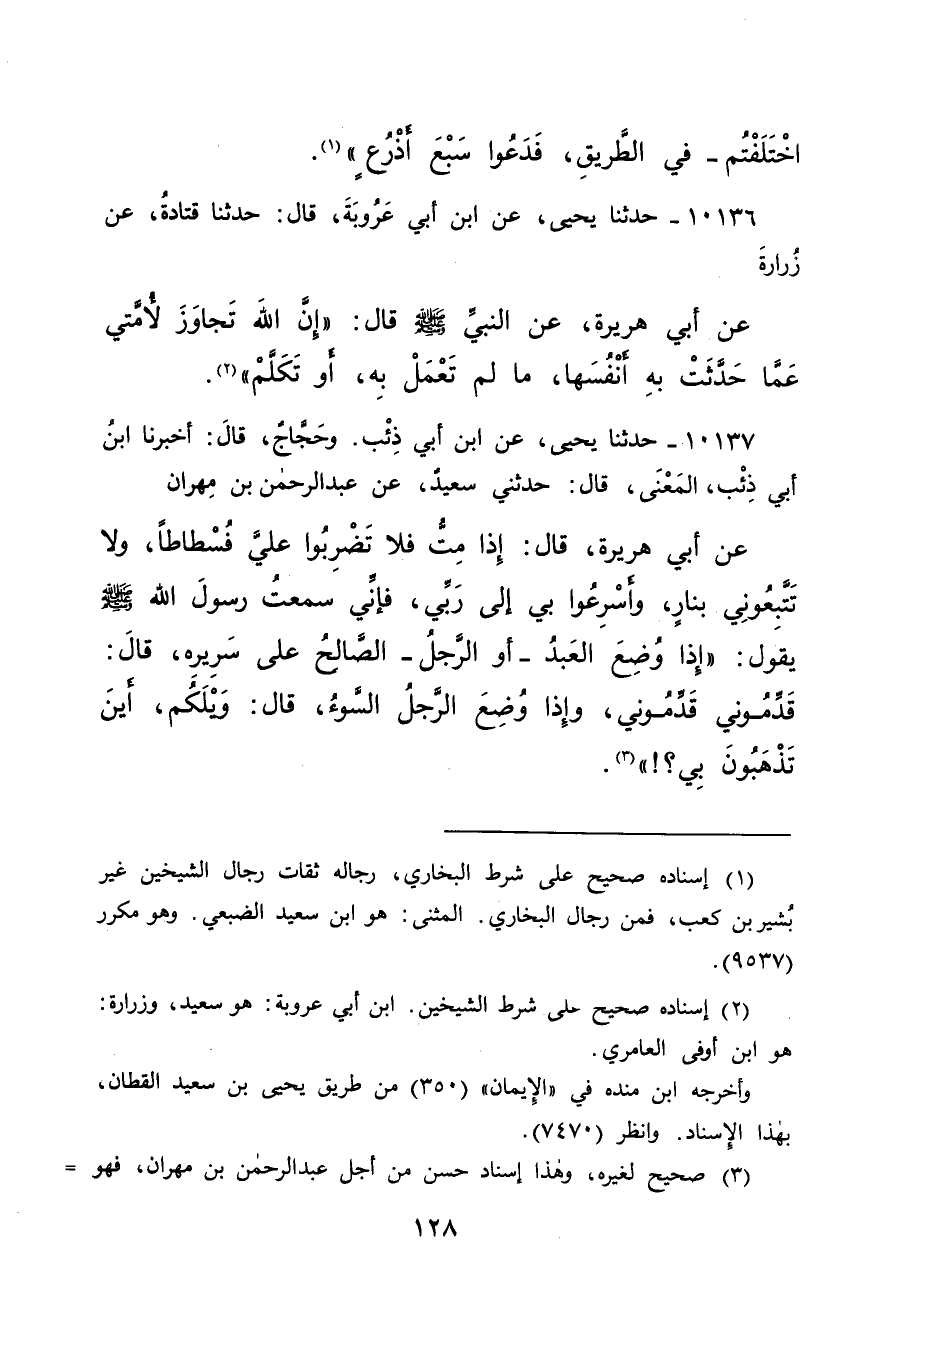 اخْتَلَفْتُم - في الطَّريقِ، فَدَعُوا سَبْعَ أَذْرُعٍ»(١).
١٠١٣٦ - حدثنا يحيى، عن ابن أبي عَرُوبَةَ، قال: حدثنا قتادةُ، عن
زُرارةَ
عن أبي هريرة، عن النبيِّ ﷺ قال: «إنَّ اللهَ تَجاوَزَ لأُمَّتي
عَمَّا حَدَّثَتْ بهِ أَنْفُسَها، ما لم تَعْمَلْ بِه، أو تَكَلَّمْ»(٢).
١٠١٣٧ - حدثنا يحيى، عن ابن أبي ذِئْب. وحَجَّاجٌ، قالَ: أخبرنا ابنُ
أبي ذِئْب، المَعْنَى، قال: حدثني سعيدٌ، عن عبدالرحمٰن بن مِهران
عن أبي هريرة، قال: إِذا مِتُّ فلا تَضْرِبُوا عليَّ فُسْطاطاً، ولا
تَتَّبِعُونِي بنارٍ، وأَسْرِعُوا بي إلى رَبِّي، فإنِّي سمعتُ رسولَ الله ﷺ
يقول: «إِذا وُضِعَ العَبدُ - أو الرَّجلُ - الصَّالحُ على سَرِيرِه، قالَ:
قَدِّمُـوني قَدِّمُـوني، وإذا وُضِعَ الرَّجلُ السَّوءُ، قال: وَيْلَكُم، أَينَ
تَذْهَبُونَ بِي؟!»(٣).
(١) إسناده صحيح على شرط البخاري، رجاله ثقات رجال الشيخين غير
بُشير بن كعب، فمن رجال البخاري. المثنى: هو ابن سعيد الضبعي. وهو مكرر
(٩٥٣٧).
(٢) إسناده صحيح على شرط الشيخين. ابن أبي عروبة: هو سعيد، وزرارة:
هو ابن أوفى العامري.
وأخرجه ابن منده في «الإيمان» (٣٥٠) من طريق يحيى بن سعيد القطان،
بهٰذا الإسناد. وانظر (٧٤٧٠).
(٣) صحيح لغيره، وهٰذا إسناد حسن من أجل عبدالرحمٰن بن مهران، فهو =
١٢٨